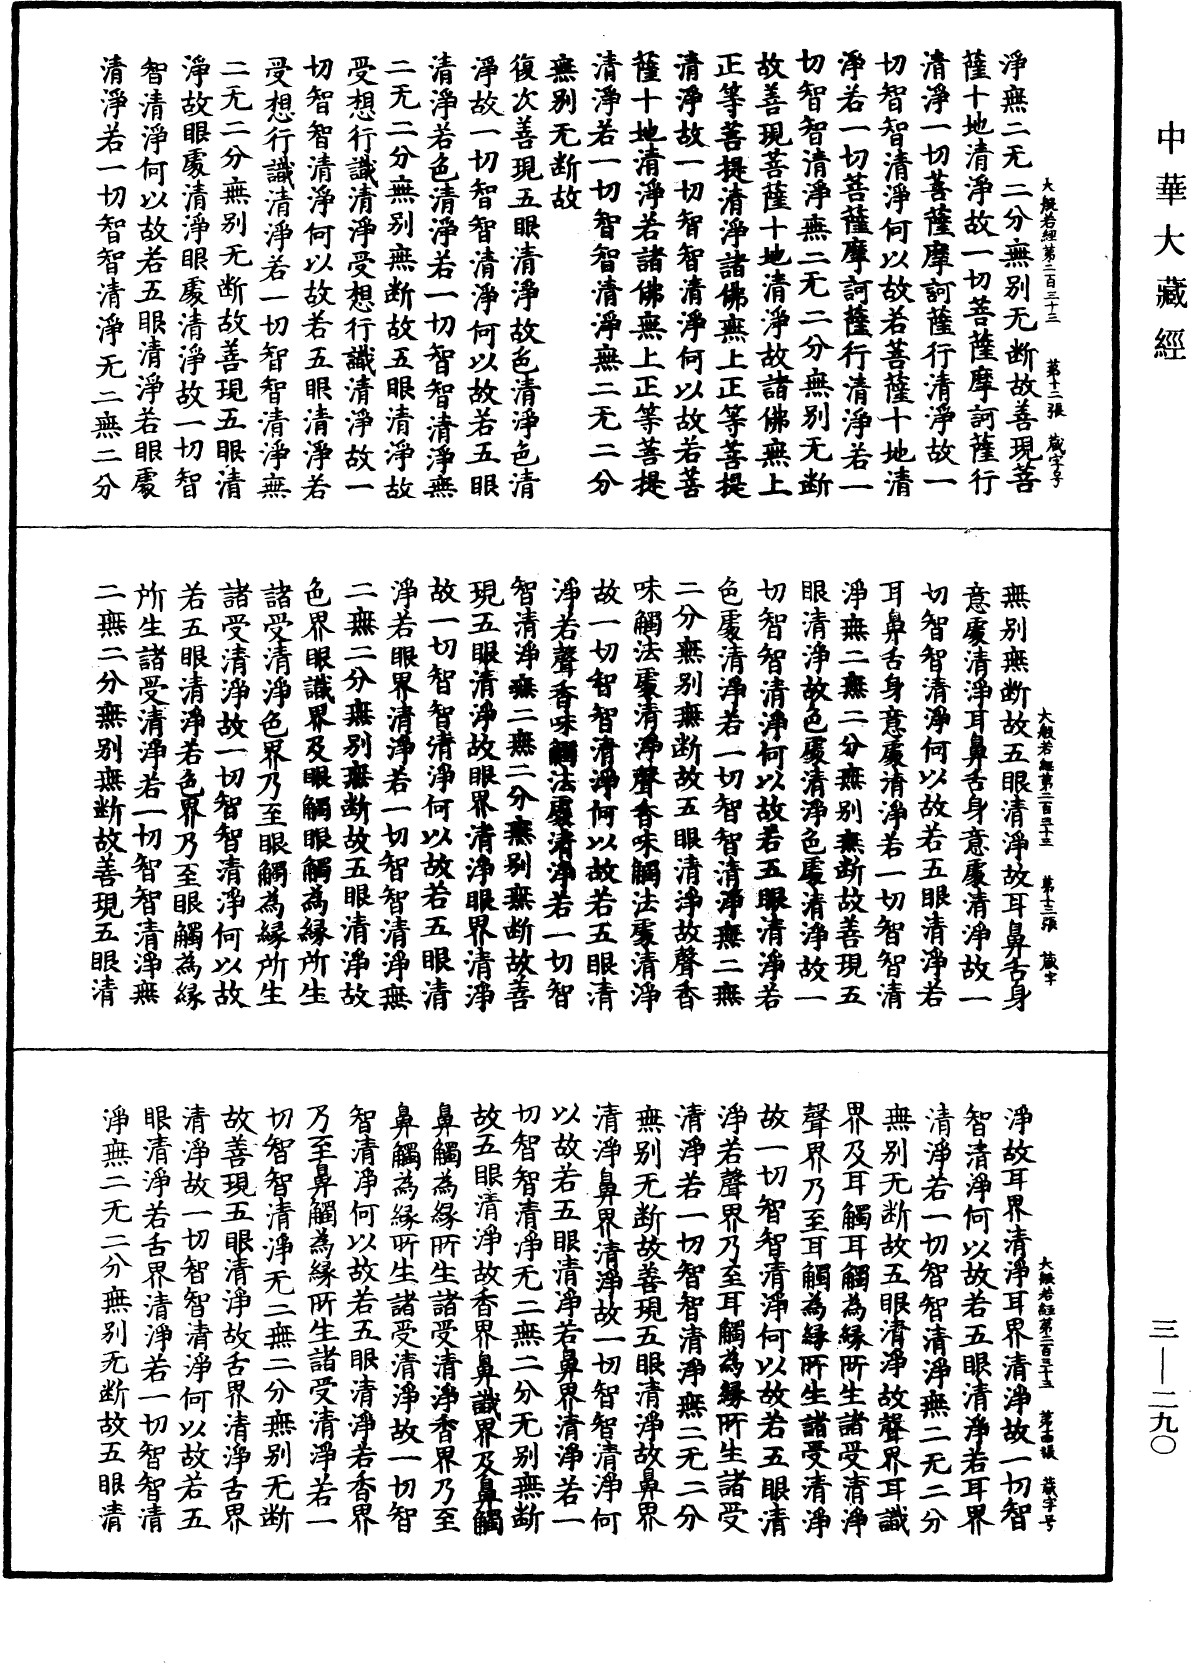 中華大藏經
三—二九〇
大般若經第二百三十三　第十二張　藏字号
淨無二无二分無別无断故善現菩
薩十地清淨故一切菩薩摩訶薩行
清淨一切菩薩摩訶薩行清淨故一
切智智清淨何以故若菩薩十地清
淨若一切菩薩摩訶薩行清淨若一
切智智清淨無二无二分無別无断
故善現菩薩十地清淨故諸佛無上
正等菩提清淨諸佛無上正等菩提
清淨故一切智智清淨何以故若菩
薩十地清淨若諸佛無上正等菩提
清淨若一切智智清淨無二无二分
無別无断故
復次善現五眼清淨故色清淨色清
淨故一切智智清淨何以故若五眼
清淨若色清淨若一切智智清淨無
二无二分無別無断故五眼清淨故
受想行識清淨受想行識清淨故一
切智智清淨何以故若五眼清淨若
受想行識清淨若一切智智清淨無
二无二分無別无断故善現五眼清
淨故眼處清淨眼處清淨故一切智
智清淨何以故若五眼清淨若眼處
清淨若一切智智清淨无二無二分
大般若經第二百三十三　第十三張　藏字
無別無断故五眼清淨故耳鼻舌身
意處清淨耳鼻舌身意處清淨故一
切智智清淨何以故若五眼清淨若
耳鼻舌身意處清淨若一切智智清
淨無二無二分無別無断故善現五
眼清淨故色處清淨色處清淨故一
切智智清淨何以故若五眼清淨若
色處清淨若一切智智清淨無二無
二分無別無断故五眼清淨故聲香
味觸法處清淨聲香味觸法處清淨
故一切智智清淨何以故若五眼清
淨若聲香味觸法處清淨若一切智
智清淨無二無二分無別無断故善
現五眼清淨故眼界清淨眼界清淨
故一切智智清淨何以故若五眼清
淨若眼界清淨若一切智智清淨無
二無二分無別無断故五眼清淨故
色界眼識界及眼觸眼觸為緣所生
諸受清淨色界乃至眼觸為緣所生
諸受清淨故一切智智清淨何以故
若五眼清淨若色界乃至眼觸為緣
所生諸受清淨若一切智智清淨無
二無二分無別無断故善現五眼清
大般若經第二百三十三　第十四張　藏字号
淨故耳界清淨耳界清淨故一切智
智清淨何以故若五眼清淨若耳界
清淨若一切智智清淨無二无二分
無別无断故五眼清淨故聲界耳識
界及耳觸耳觸為緣所生諸受清淨
聲界乃至耳觸為緣所生諸受清淨
故一切智智清淨何以故若五眼清
淨若聲界乃至耳觸為緣所生諸受
清淨若一切智智清淨無二无二分
無別无断故善現五眼清淨故鼻界
清淨鼻界清淨故一切智智清淨何
以故若五眼清淨若鼻界清淨若一
切智智清淨无二無二分无別無断
故五眼清淨故香界鼻識界及鼻觸
鼻觸為緣所生諸受清淨香界乃至
鼻觸為緣所生諸受清淨故一切智
智清淨何以故若五眼清淨若香界
乃至鼻觸為緣所生諸受清淨若一
切智智清淨无二無二分無別无断
故善現五眼清淨故舌界清淨舌界
清淨故一切智智清淨何以故若五
眼清淨若舌界清淨若一切智智清
淨無二无二分無別无断故五眼清